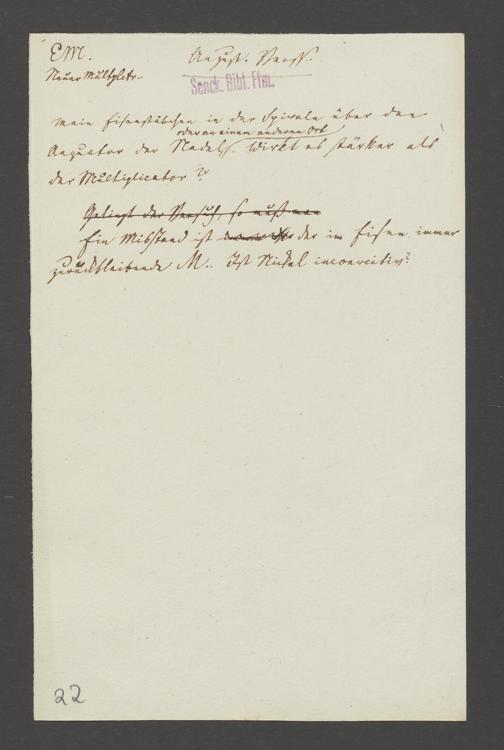 EM.
August. Vers..
Neuer Multplctr..
Senck. Bibl. Ffm.
mein Eisenstäbchen in der Spirale über den
oder an einem anderen Ort
Aequator der Nadel. wirkt es stärker als
der Multiplicator?
Gelingt der Versuch, so muß man
Ein Misstand ist der im Eisen immer
zurückbleibende M.. Ist Nickel incoercitiv?
22